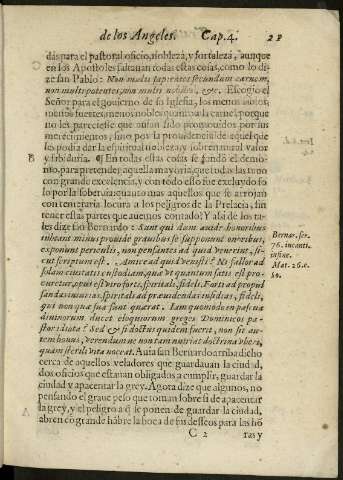 de los Angeles. Cap. 4. 23
das para el pastoral oficio, nobleza, y fortaleza, aunque
en los Apostoles faltauan todas estas cosas, como lo di-
ze san Pablo: Non multi sapientes secundum carnem,
non multi potentes, non multi nobiles, &c. Escogio el
Señor para el gouierno de su Iglesia, los menos
menos fuertes, menos nobles quanto a la carne, porque
no les pareciesse que auian sido promouidos por sus
merecimientos, sino por la prouidencia de aquel que
les podia dar la espiritual nobleza, y sobrenatural valor
y sabiduria. ¶ En todas estas cosas se fundò el demo-
nio, para pretender aquella mayoria, que todas las tuuo
con grande excelencia, y con todo esso fue excluydo so-
lo por la soberuia: quanto mas aquellos que se arrojan
con temeraria locura a los peligros de la Prelacia, sin
tener estas partes que auemos contado? Y assi de los ta-
les dize san Bernardo: Sunt qui dum auidè honoribus
inhiant minus prouidè grauibus se supponunt oneribus,
exponunt periculis, non pensantes ad quid venerint, si-
cut scriptum est. Amice ad quid venisti? Ni fallor ad
solam ciuitatis custodiam, quæ vt quantum satis est pro-
curetur, opus est viro forti, spirituali, fideli. Forti ad propul
sandas iniurias, spirituali ad prouidendas insidias, fideli,
qui non quæ sua sunt quærat. Iam quomodo in pascua
diuinorum ducet eloquiorum greges Dominicos pa-
stor idiota? Sed & si doctus quidem fuerit, non sit au-
tem bonus, verendum ne non tam nutriat doctrina vberi,
quam sterili vita noceat. Auia san Bernardo arriba dicho
cerca de aquellos veladores que guardauan la ciudad,
dos oficios que estauan obligados a cumplir, guardar la
ciudad y apacentar la grey. Agora dize que algunos, no
pensando el graue peso que toman sobre si de apacentar
la grey, y el peligro a q̃ se ponen de guardar la ciudad,
abren cõ grande hãbre la boca de sus desseos para las hõ
C 2 ras y
B
Bernar. ser.
76. in canti.
in fine.
Mat. 26. c.
50.